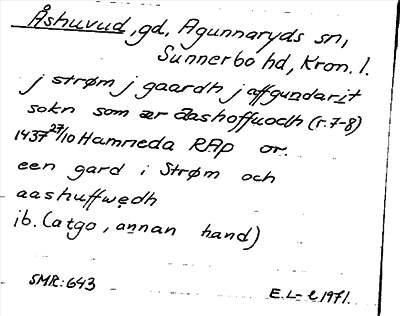 Åshuvud, gd, Agunnaryds sn,
Sunnerbo hd, Kron. l.
j strøm j gaardh j affgundarit
sokn som ær aashoffwodh (r. 7-8)
1437 27/10 Hamneda RAp or.
een gard i Strøm och
aashuffwedh
ib. (atgo, annan hand)
SMR: 643
E.L-l 1971.